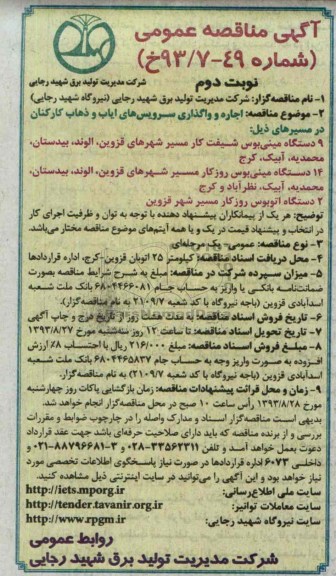 آگهی مناقصه عمومی
(شماره ۴۹-۹۳/۷خ)
نوبت دوم
شرکت مدیریت تولید برق شهید رجایی
۱- نام مناقصه‌گزار: شرکت مدیریت تولید برق شهید رجایی (نیروگاه شهید رجایی)
۲- موضوع مناقصه: اجاره و واگذاری سرویس‌های ایاب و ذهاب کارکنان
در مسیرهای ذیل:
۹ دستگاه مینی‌بوس شیفت کار مسیر شهرهای قزوین، الوند، بیدستان،
محمدیه، آبیک، کرج
۱۴ دستگاه مینی‌بوس روزکار مسیر شهرهای قزوین، الوند، بیدستان،
محمدیه، آبیک، نظرآباد و کرج
۲ دستگاه اتوبوس روزکار مسیر شهر قزوین
توضیح: هر یک از پیمانکاران پیشنهاد دهنده با توجه به توان و ظرفیت اجرای کار
در انتخاب و پیشنهاد قیمت در یک و یا همه آیتم‌های موضوع مناقصه مختار می‌باشد.
۳- نوع مناقصه: عمومی- یک مرحله‌ای
۴- محل دریافت اسناد مناقصه: کیلومتر ۲۵ اتوبان قزوین-کرج، اداره قراردادها
۵- میزان سپرده شرکت در مناقصه: مبلغ به شرح شرایط مناقصه بصورت
ضمانت‌نامه بانکی یا واریز به حساب جام ۶۸۰۴۴۶۶۰۸۱ بانک ملت شعبه
اسدآبادی قزوین (باجه نیروگاه با کد شعبه ۲۱۰۹/۷ به نام مناقصه‌گزار).
۶- تاریخ فروش اسناد مناقصه: به مدت هفت روز از تاریخ درج و چاپ آگهی
۷- تاریخ تحویل اسناد مناقصه: تا ساعت ۱۲ روز سه‌شنبه مورخ ۱۳۹۳/۸/۲۷
۸- مبلغ فروش اسناد مناقصه: مبلغ ۲۱۶/۰۰۰ ریال با احتساب ۸٪ ارزش
افزوده به صورت واریز وجه به حساب جام ۶۸۰۴۴۶۵۸۳۷ بانک ملت شعبه
اسدآبادی قزوین (باجه نیروگاه با کد شعبه ۲۱۰۹/۷) به نام مناقصه‌گزار.
۹- زمان و محل قرائت پیشنهادات مناقصه: زمان بازگشایی پاکات روز چهارشنبه
مورخ ۱۳۹۳/۸/۲۸ رأس ساعت ۱۰ صبح در محل مناقصه‌گزار انجام خواهد شد.
بدیهی است مناقصه‌گزار اسناد و مدارک واصله را در چارچوب ضوابط و مقررات
بررسی و از برنده مناقصه که باید دارای صلاحیت حرفه‌ای باشد جهت عقد قرارداد
دعوت بعمل خواهد آمد و تلفن ۳۳۵۶۲۳۱۱-۰۲۸ و ۳-۸۸۷۹۶۶۸۱-۰۲۱ و
داخلی ۶۰۷۳ اداره قراردادها در صورت نیاز پاسخگوی اطلاعات تخصصی مورد
نیاز خواهد بود و این آگهی را می‌توانید در سایت اینترنتی ذیل مشاهده کنید.
سایت ملی اطلاع‌رسانی: http://iets.mporg.ir
سایت معاملات توانیر: http://tender.tavanir.org.ir
سایت نیروگاه شهید رجایی: http://www.rpgm.ir
روابط عمومی
شرکت مدیریت تولید برق شهید رجایی